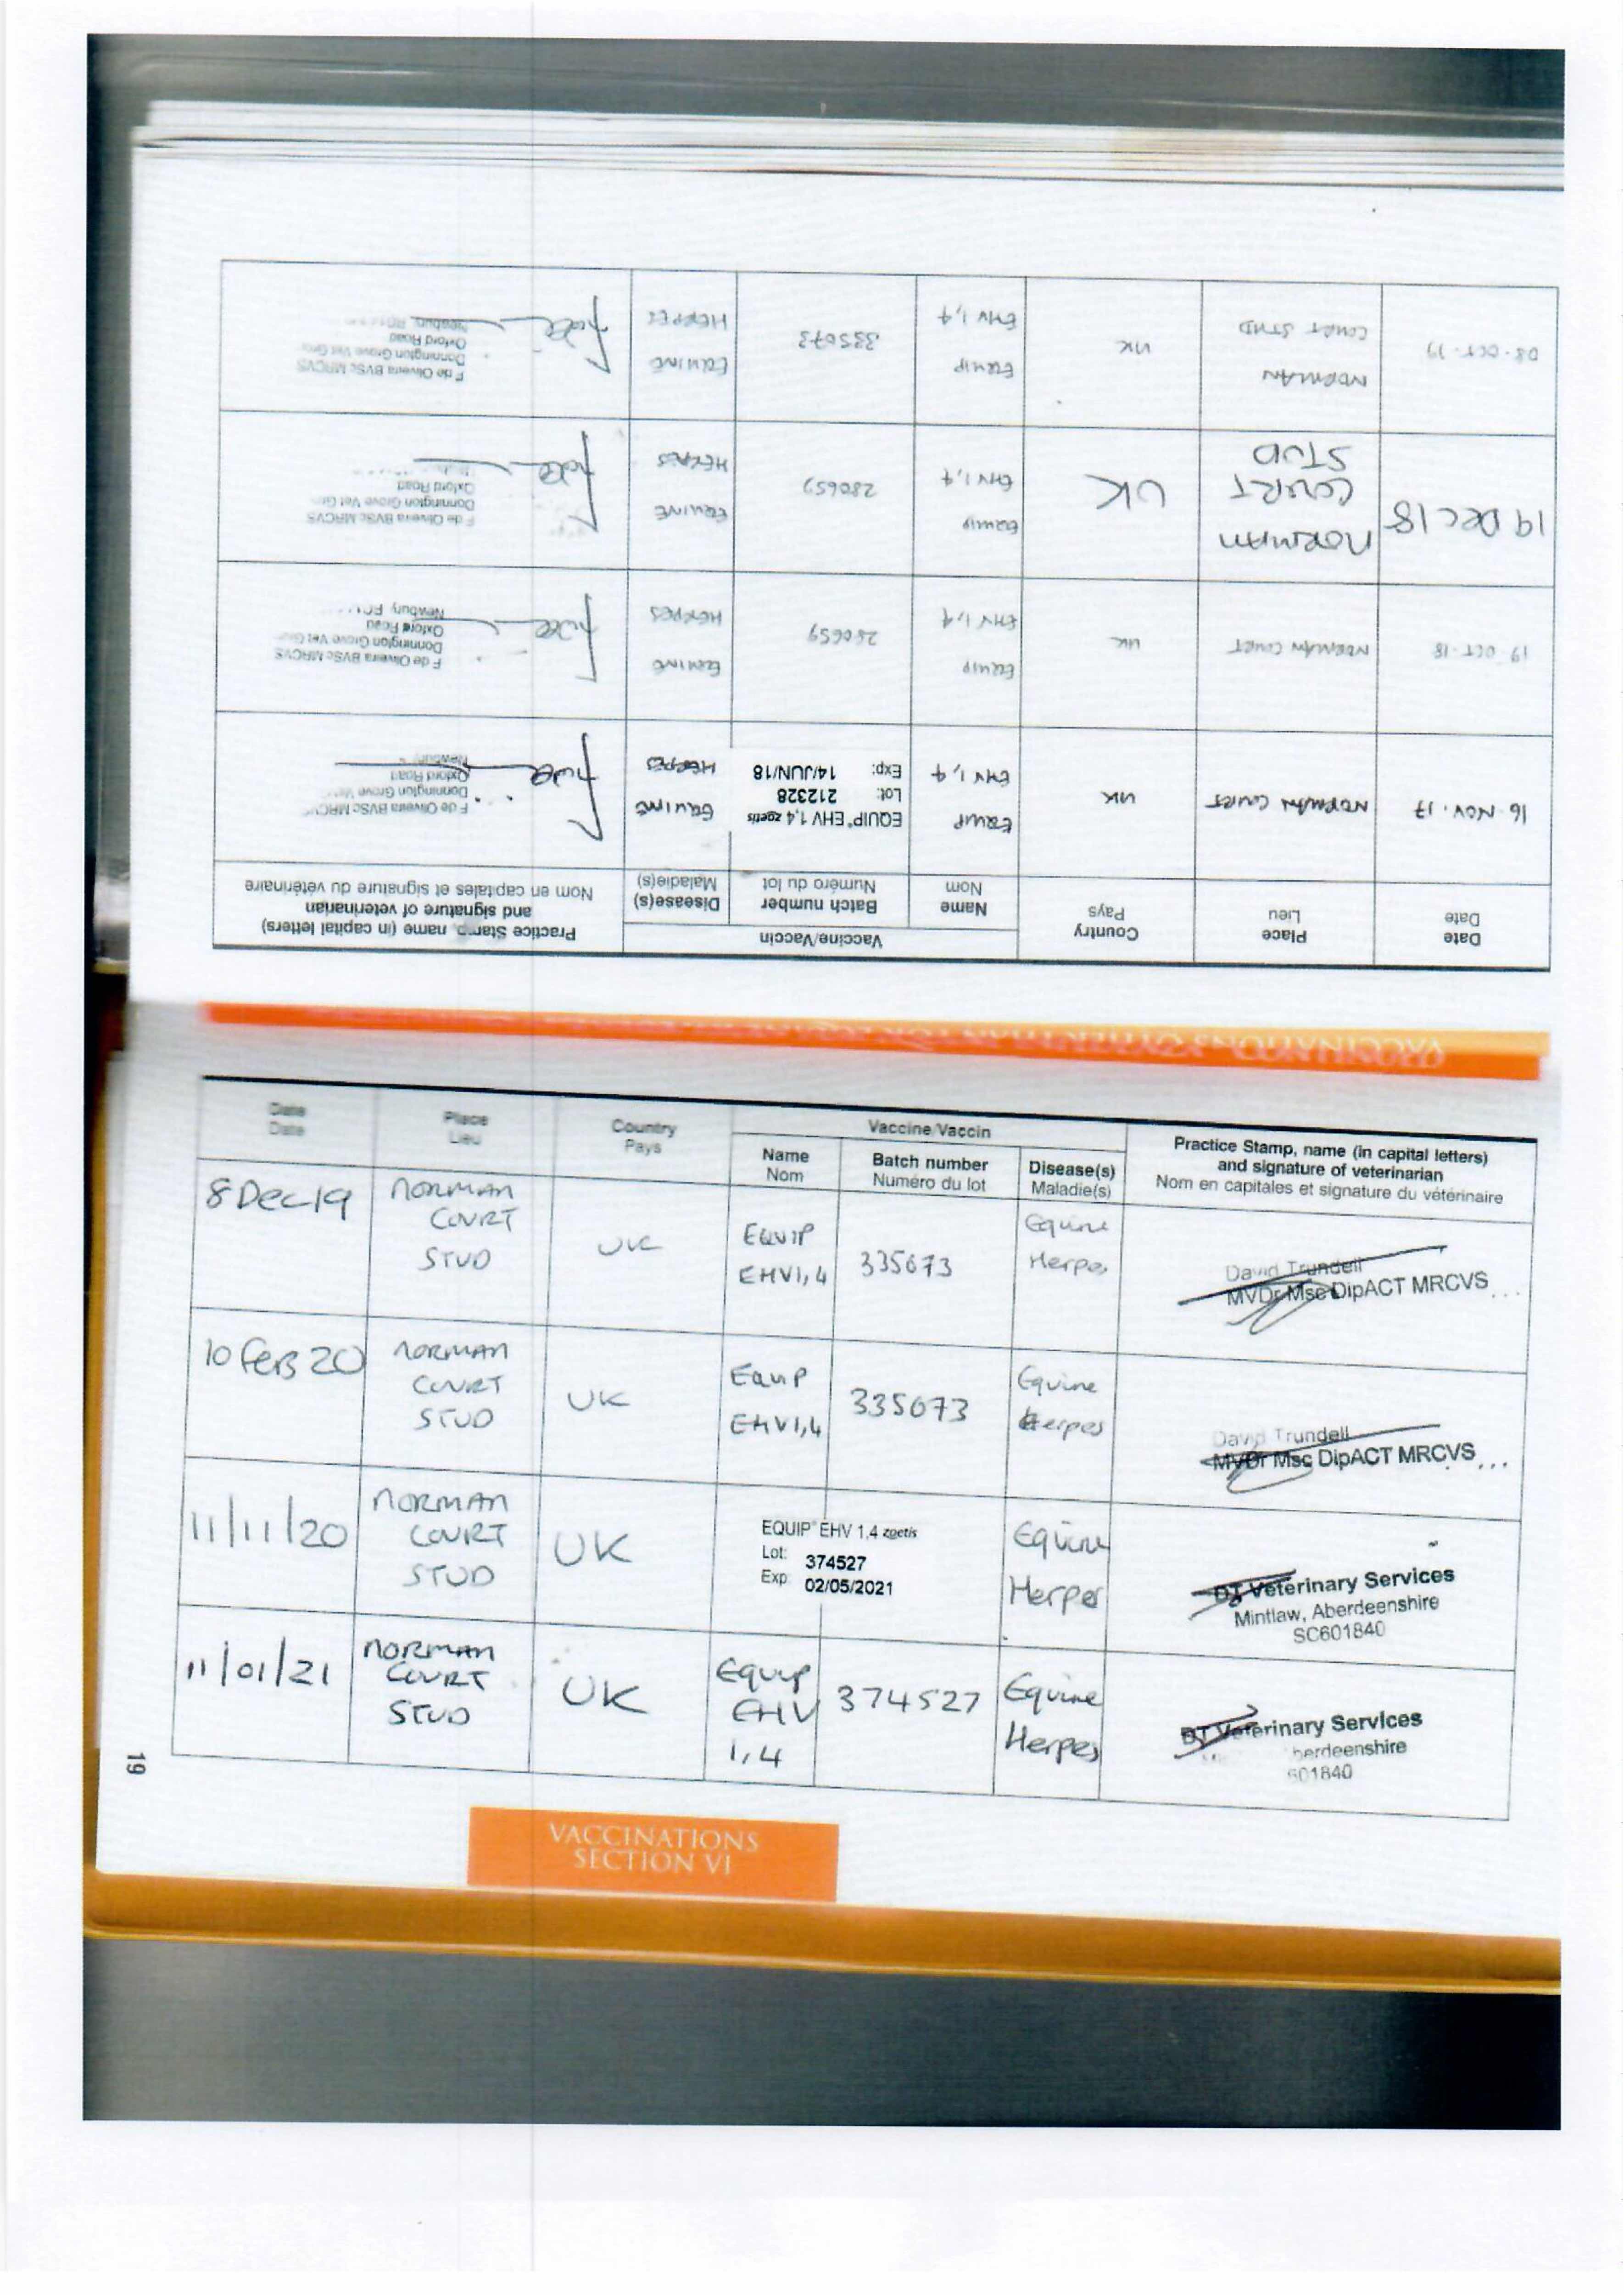 VACCINATIONS OTHER THAN FOR EQUINE
Date
Date
Place
Lieu
Country
Pays
Vaccine/Vaccin
Name
Nom
Batch number
Numéro du lot
Disease(s)
Maladie(s)
Practice Stamp, name (in capital letters)
and signature of veterinarian
Nom en capitales et signature du vétérinaire
16. NOV. 17
NORMAN COURT
UK
EQUIP
EHV 1,4
EQUIP® EHV 1,4 zoetis
Lot: 212328
Exp: 14/JUN/18
EQUINE
HERPES
F de Oliveira BVSc MRCVS
Donnington Grove Vet
Oxford Road
Newbury
19. OCT. 18
NORMAN COURT
UK
EQUIP
EHV 1,4
280659
EQUINE
HERPES
F de Oliveira BVSc MRCVS
Donnington Grove Vet
Oxford Road
Newbury
19 Dec 18
NORMAN
COURT
STUD
UK
EQUIP
EHV 1,4
280659
EQUINE
HERPES
F de Oliveira BVSc MRCVS
Donnington Grove Vet
Oxford Road
08. OCT. 19
NORMAN
COURT STUD
UK
EQUIP
EHV 1,4
335073
EQUINE
HERPES
F de Oliveira BVSc MRCVS
Donnington Grove Vet
Oxford Road
Newbury
Date
Date
Place
Lieu
Country
Pays
Vaccine/Vaccin
Name
Nom
Batch number
Numéro du lot
Disease(s)
Maladie(s)
Practice Stamp, name (in capital letters)
and signature of veterinarian
Nom en capitales et signature du vétérinaire
8 Dec 19
NORMAN
COURT
STUD
UK
EQUIP
EHV1,4
335073
Equine
Herpes
David Trundell
MVDr Msc DipACT MRCVS
10 Feb 20
NORMAN
COURT
STUD
UK
Equip
EHV1,4
335073
Equine
Herpes
David Trundell
MVDr Msc DipACT MRCVS
11/11/20
NORMAN
COURT
STUD
UK
EQUIP® EHV 1,4 zoetis
Lot: 374527
Exp: 02/05/2021
Equine
Herpes
DT Veterinary Services
Mintlaw, Aberdeenshire
SC601840
11/01/21
NORMAN
COURT
STUD
UK
Equip
EHV
1,4
374527
Equine
Herpes
DT Veterinary Services
berdeenshire
601840
19
VACCINATIONS
SECTION VI